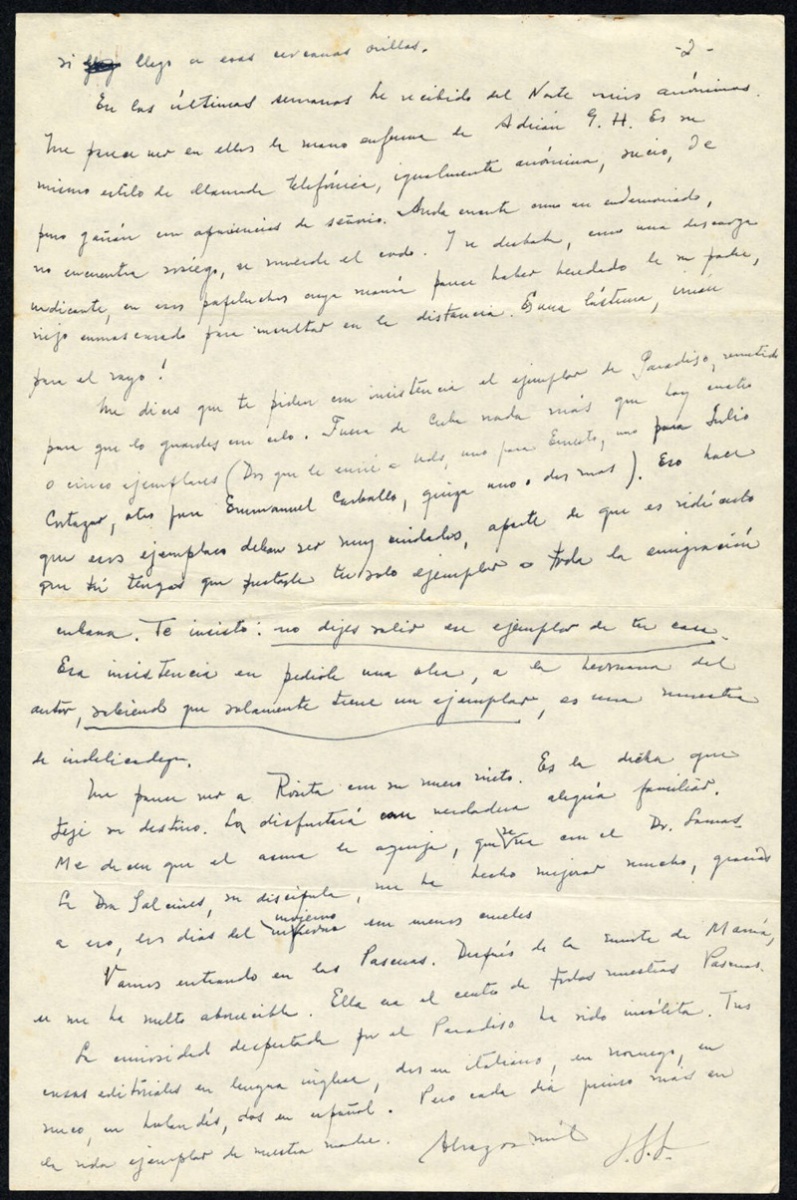 si llego a esas cercanas orillas. -2-
En las últimas semanas he recibido del Norte unos anónimos.
Me parece ver en ellos la mano enferma de Adrián G. H. Es su
mismo estilo de llamada telefónica, igualmente anónima, sucio, de
puro gañán con apariencias de señorío. Anda errante como un endemoniado,
no encuentra sosiego, se muerde el codo. Y se desbata, como una descarga
indicante, en esos papeluchos cuya manía parece haber heredado de su padre,
viejo enmascarado para insultar en la distancia. Es una lástima,
para el rayo!
Me dices que te piden con insistencia el ejemplar de Paradiso, remitido
para que lo guardes con celo. Fuera de Cuba nada más que hay cuatro
o cinco ejemplares (Dos que le envié a Uds, uno para Ernesto, uno para Julio
Cortazar, otro para Emmanuel Carballo, quizá uno o dos mas). Eso hace
que esos ejemplares deban ser muy cuidados, aparte de que es ridículo
que tú tengas que prestarle tu solo ejemplar a toda la emigración
cubana. Te insisto: no dejes salir ese ejemplar de tu casa.
Esa insistencia en pedirle una obra, a la hermana del
autor, sabiendo que solamente tiene un ejemplar, es una muestra
de indelicadeza.
Me parece ver a Rosita con su nuevo nieto. Es la dicha que
teje su destino. La disfrutará con verdadera alegría familiar.
Me dicen que el asma le aqueja, que se vea con el Dr. Lamas.
La Dra Salcines, su discípula, me ha hecho mejorar mucho, gracias
a eso, los días del invierno son menos crueles
Vamos entrando en las Pascuas. Después de la muerte de Mamá,
se me ha vuelto aborrecible. Ella era el centro de todas nuestras Pascuas.
La curiosidad despertada por el Paradiso ha sido insólita. Tres
casas editoriales en lengua inglesa, dos en italiano, en noruego, en
sueco, en holandés, dos en español. Pero cada día pienso más en
la vida ejemplar de nuestra madre. Abrazos mil
J.L.L.